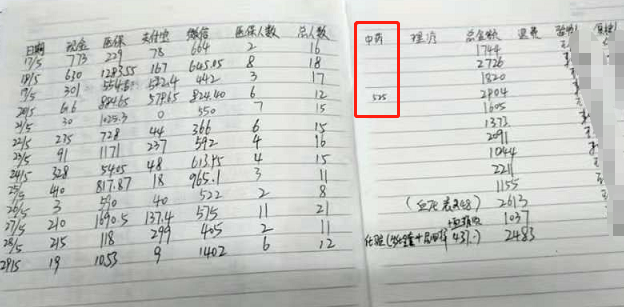 日期 现金 医保 支付宝 微信 医保人数 总人数 中药 理疗 总金额 退费
17/5 773 229 78 664 2 16 1744
18/5 630 1283.55 167 645.05 8 18 2726
9/5 301 554.6 522.4 442 3 17 1820
20/5 616 884.65 578.65 824.40 6 12 525 2904
21/5 30 1025.3 0 550 7 15 1605
22/5 275 728 44 366 6 15 1373
23/5 91 1171 237 592 4 16 2091
24/5 328 54.05 48 613.45 4 15 1044
25/5 40 817.87 18 965.1 3 11 2211
26/5 3 590 40 522 2 8 1155
27/5 210 1690.5 137.4 575 11 21 2613
28/5 215 118 299 405 2 11 1037
29/5 19 1053 9 1402 6 12 437 2483